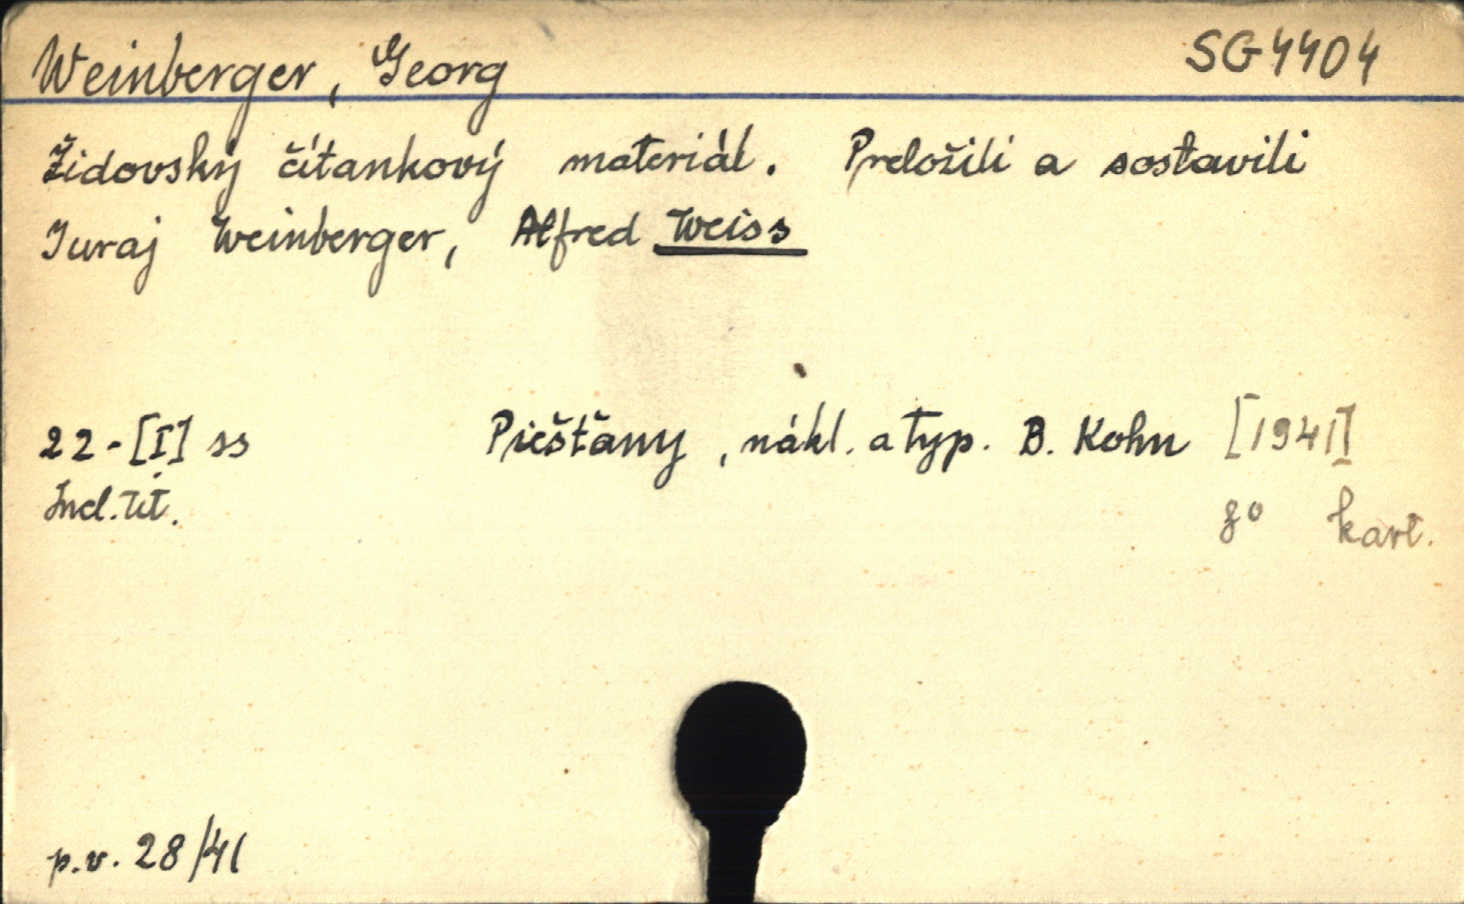 Weinberger, Georg SG 4404
Židovský čítankový materiál. Preložili a sostavili
Juraj Weinberger, Alfred Weiss
22-[I] ss Piešťany, nákl. a typ. B. Kohn [1941]
Incl. tit. 8° kart.
p.v. 28/41